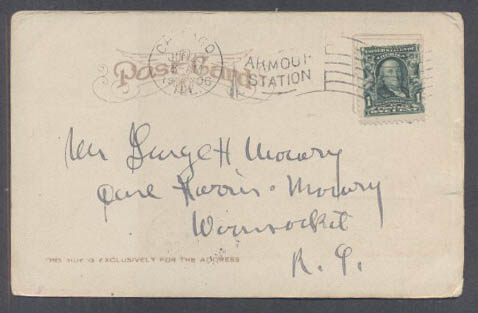 CHICAGO
Post Card
ARMOUR
STATION
ONE CENT
Mr George H Mowry
Care Harris-Mowry
Woonsocket
R. I.
THIS SIDE IS EXCLUSIVELY FOR THE ADDRESS